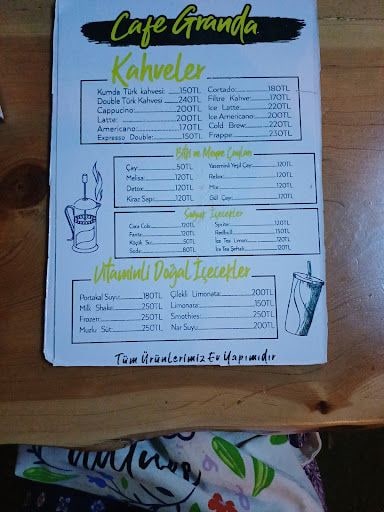 Cafe Granda
Kahveler
Kumda Türk kahvesi: 150TL
Double Türk Kahvesi 240TL
Cappucino: 200TL
Latte: 200TL
Americano: 170TL
Expresso Double: 150TL
Cortado: 180TL
Filtre Kahve: 170TL
Ice Latte: 220TL
Ice Americano: 200TL
Cold Brew: 220TL
Frappe: 230TL
Bitki ve Meyve Çayları
Çay 50TL
Melisa 120TL
Detox 120TL
Kiraz Sapı 120TL
Yasemenli Yeşil Çay 120TL
Relax 120TL
Mix 120TL
Gül Çayı 170TL
Soğuk İçecekler
Coca Cola 120TL
Fanta 120TL
Küçük Su
Soda
Sprite 120TL
Redbull 150TL
Ice Tea Limon 120TL
Ice Tea Şeftali 120TL
Vitaminli Doğal İçecekler
Portakal Suyu 180TL
Milk Shake 250TL
Frozen 250TL
Muzlu Süt 250TL
Çilekli Limonata 200TL
Limonata 150TL
Smothies 250TL
Nar Suyu 200TL
Tüm Ürünlerimiz Ev Yapımıdır